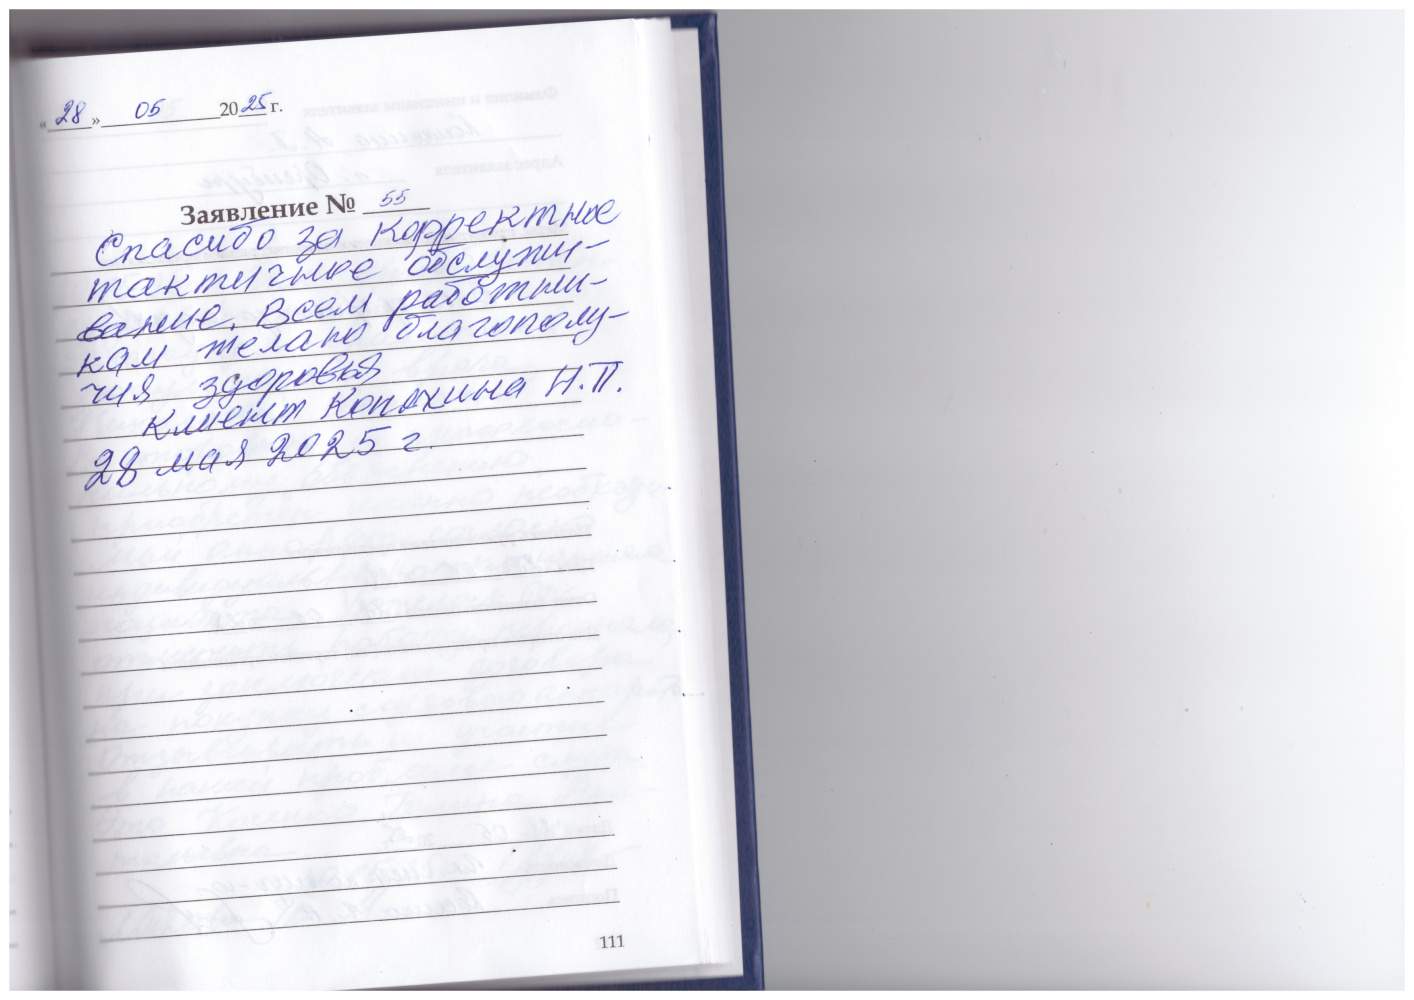 «28» 05 2025 г.
Заявление № 55
Спасибо за корректное
тактичное обслужи-
вание. Всем работни-
кам желаю благополу-
чия здоровья
клиент Копыхина Н.П.
28 мая 2025 г.
111